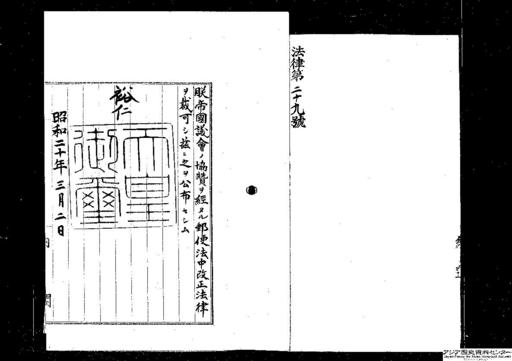 法律第二十九號
朕帝國議會ノ協贊ヲ經タル郵便法中改正法律
ヲ裁可シ玆ニ之ヲ公布セシム
裕仁
天皇
御璽
昭和二十年三月二日
内閣
アジア歴史資料センター